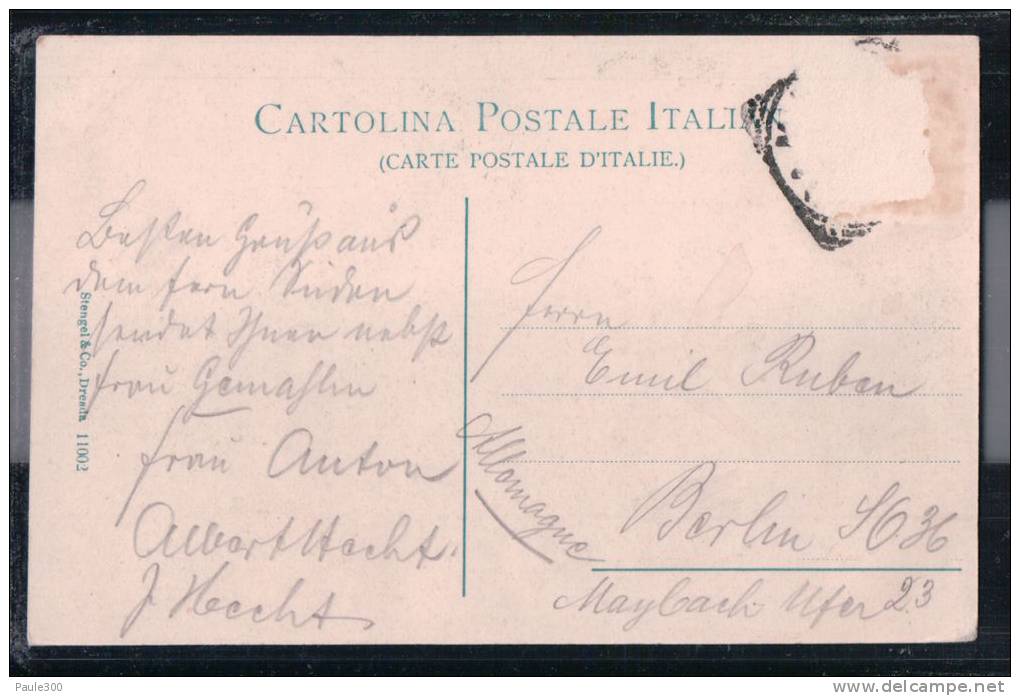 CARTOLINA POSTALE ITALIAN
(CARTE POSTALE D'ITALIE.)
Besten Gruß aus
dem fern Süden
sendet Ihnen nebst
Frau Gemahlin
Frau Anton
Albert Hecht.
J Hecht
Stengel & Co., Dresda 11002
Herrn
Emil Ruben
Allemagne
Berlin SO 36
Maybach Ufer 23
Paule300
delcampe.net